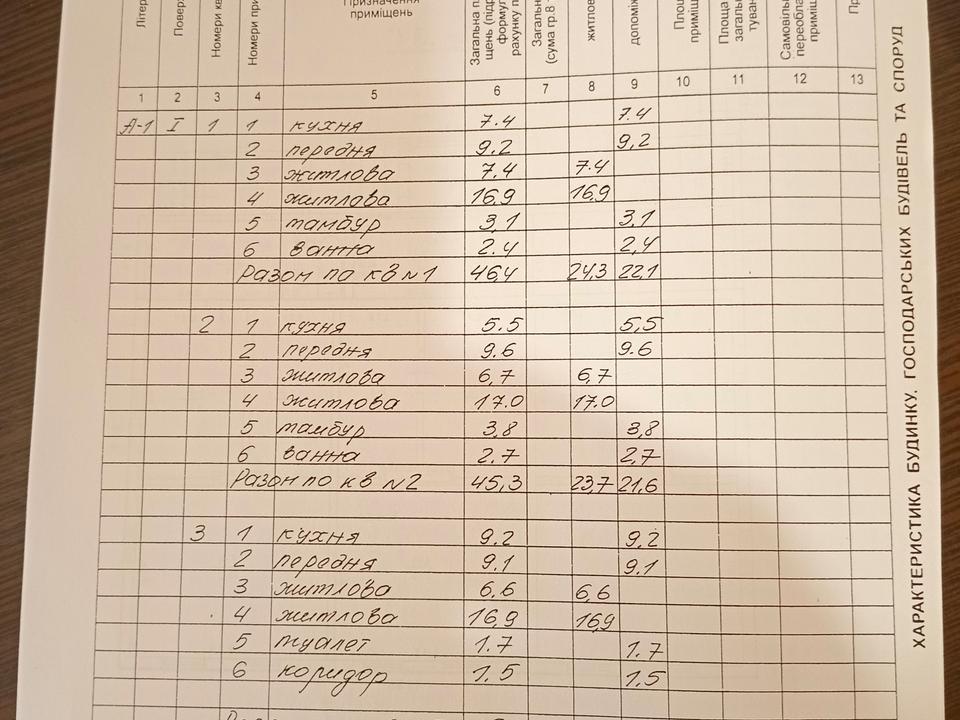 Призначення
приміщень
1 2 3 4 5 6 7 8 9 10 11 12 13
А-1 I 1 1 кухня 7.4 7.4
2 передня 9.2 9,2
3 житлова 7.4 7.4
4 житлова 16,9 16,9
5 тамбур 3,1 3,1
6 ванна 2.4 2,4
Разом по кв №1 46,4 24,3 22,1
2 1 кухня 5.5 5,5
2 передня 9.6 9.6
3 житлова 6,7 6,7
4 житлова 17.0 17.0
5 тамбур 3,8 3,8
6 ванна 2.7 2,7
Разом по кв №2 45,3 23,7 21,6
3 1 кухня 9.2 9.2
2 передня 9.1 9.1
3 житлова 6.6 6,6
4 житлова 16,9 16,9
5 туалет 1.7 1.7
6 коридор 1.5 1.5
ХАРАКТЕРИСТИКА БУДИНКУ, ГОСПОДАРСЬКИХ БУДІВЕЛЬ ТА СПОРУД